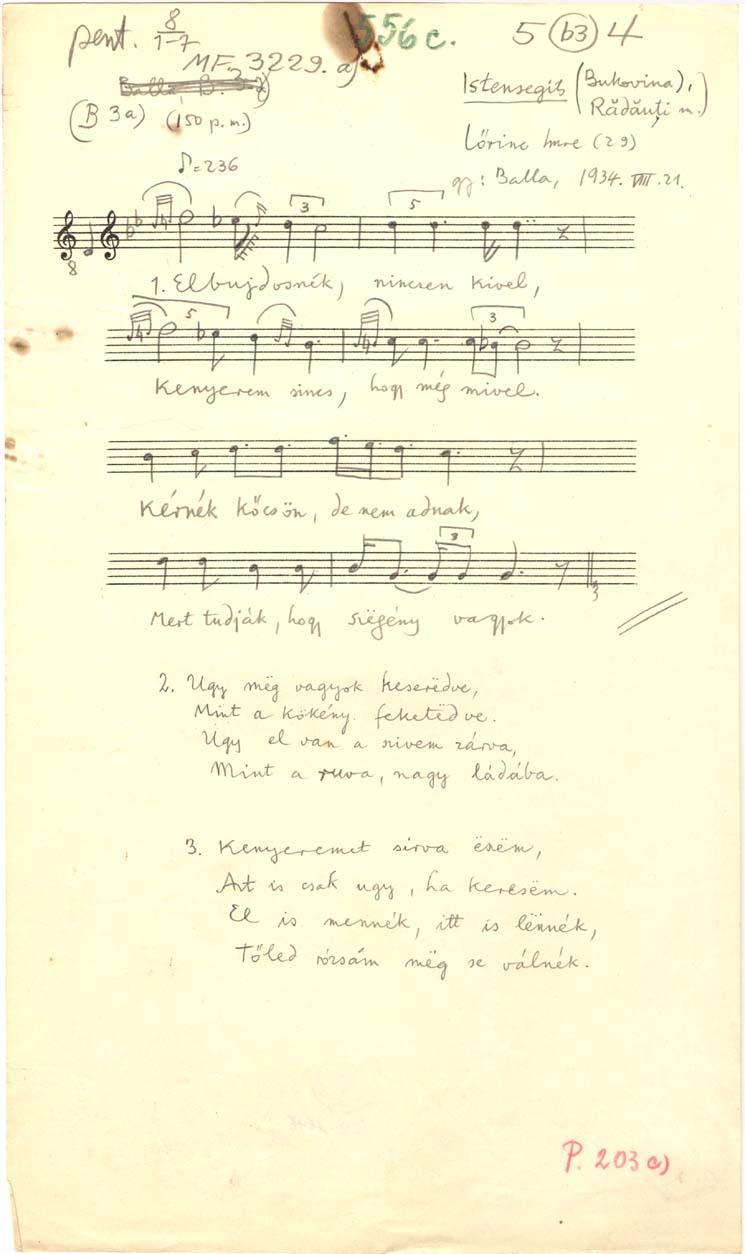 pent. 8/1-7
556 c.
5 (b3) 4
MF. 3229. a)
Balla B.
(B 3a) (150 p.m.)
Istensegits (Bukovina),
Rădăuți m.)
Lőrinc Imre (29)
gy: Balla, 1934. VIII. 21.
♪=236
3
5
8
1. Elbujdosnék, nincsen kivel,
5
3
Kenyerem sincs, hogy még mivel.
Kérnék kőcsön, de nem adnak,
3
3
Mert tudják, hogy szëgény vagyok.
2. Ugy mëg vagyok keserëdve,
Mint a kökény feketëdve.
Ugy el van a szivem zárva,
Mint a ruva, nagy ládába.
3. Kenyeremet sírva ëszëm,
Azt is csak ugy, ha keresëm.
El is mennék, itt is lënnék,
Tőled rózsám mëg se válnék.
P. 203 c)